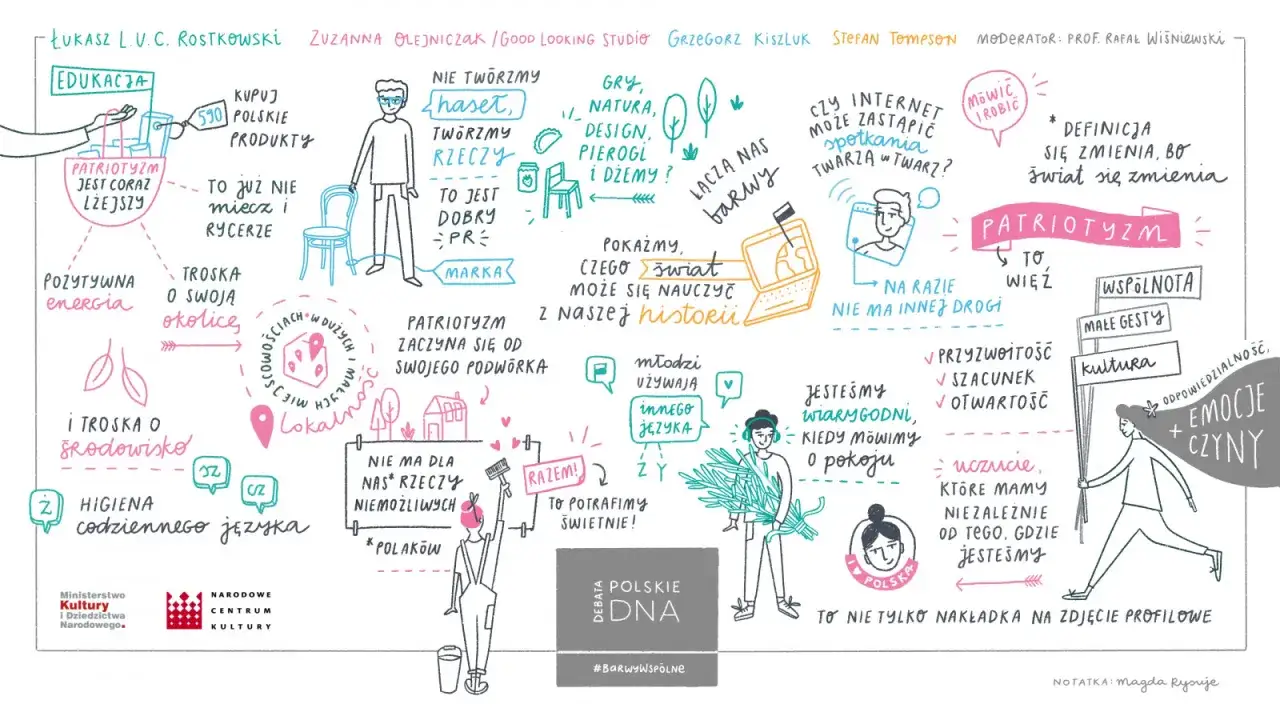 ŁUKASZ L.U.C. ROSTKOWSKI
ZUZANNA OLEJNICZAK / GOOD LOOKING STUDIO
GRZEGORZ KISZLUK
STEFAN TOMPSON
MODERATOR: PROF. RAFAŁ WIŚNIEWSKI
EDUKACJA
590
KUPUJ
POLSKIE
PRODUKTY
PATRIOTYZM
JEST CORAZ
LŻEJSZY
TO JUŻ NIE
miecz i
RYCERZE
POZYTYWNA
energia
TROSKA
O SWOJĄ
okolicę
I TROSKA O
środowisko
W DUŻYCH I MAŁYCH MIEJSCOWOŚCIACH
Lokalność
Ż
SZ
CZ
HIGIENA
codziennego języka
NIE TWÓRZMY
haseł,
TWÓRZMY
RZECZY
TO JEST
DOBRY
PR
MARKA
GRY,
NATURA,
DESIGN,
PIEROGI
I DŻEMY?
ŁĄCZĄ NAS
barwy
POKAŻMY,
CZEGO świat
MOŻE SIĘ NAUCZYĆ
Z NASZEJ historii
CZY INTERNET
MOŻE ZASTĄPIĆ
spotkania
TWARZĄ W TWARZ?
NA RAZIE
NIE MA INNEJ DROGI
MÓWIĆ
I ROBIĆ
* DEFINICJA
SIĘ ZMIENIA, BO
świat się zmienia
PATRIOTYZM
TO
WIĘŹ
PATRIOTYZM
ZACZYNA SIĘ OD
SWOJEGO PODWÓRKA
NIE MA DLA
NAS* RZECZY
NIEMOŻLIWYCH
*POLAKÓW
RAZEM!
TO POTRAFIMY
ŚWIETNIE!
młodzi
UŻYWAJĄ
innego
języka
Z Y
JESTEŚMY
WIARYGODNI,
KIEDY MÓWIMY
O POKOJU
PRZYZWOITOŚĆ
SZACUNEK
OTWARTOŚĆ
WSPÓLNOTA
MAŁE GESTY
kultura
ODPOWIEDZIALNOŚĆ,
EMOCJE
+ CZYNY
uczucie,
KTÓRE MAMY
NIEZALEŻNIE
OD TEGO, GDZIE
JESTEŚMY
I ♥ POLSKA
TO NIE TYLKO NAKŁADKA NA ZDJĘCIE PROFILOWE
Ministerstwo
Kultury
i Dziedzictwa
Narodowego.
NARODOWE
CENTRUM
KULTURY
DEBATA
POLSKIE
DNA
#BARWYWSPÓLNE
NOTATKA: Magda Rysuje